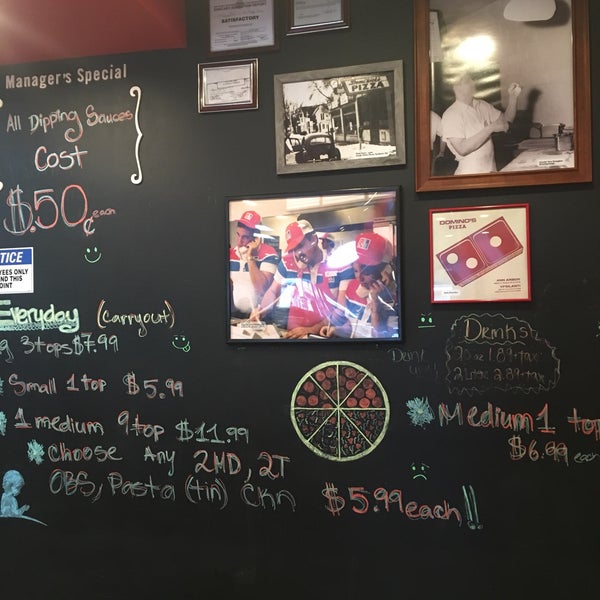 SATISFACTORY
Manager's Special
All Dipping Sauces
Cost
$.50¢ each
NOTICE
YEES ONLY
ND THIS
OINT
PIZZA
DOMINO'S
PIZZA
ANN ARBOR
YPSILANTI
Everyday (Carryout)
g 3tops $7.99
Small 1 top $5.99
1 medium 9top $11.99
Choose Any 2MD, 2T
OBS, Pasta (tin) Ckn $5.99 each!!
Drinks
20oz 1.89+tax
2Ltr 2.89+tax
Medium 1 top
$6.99 each